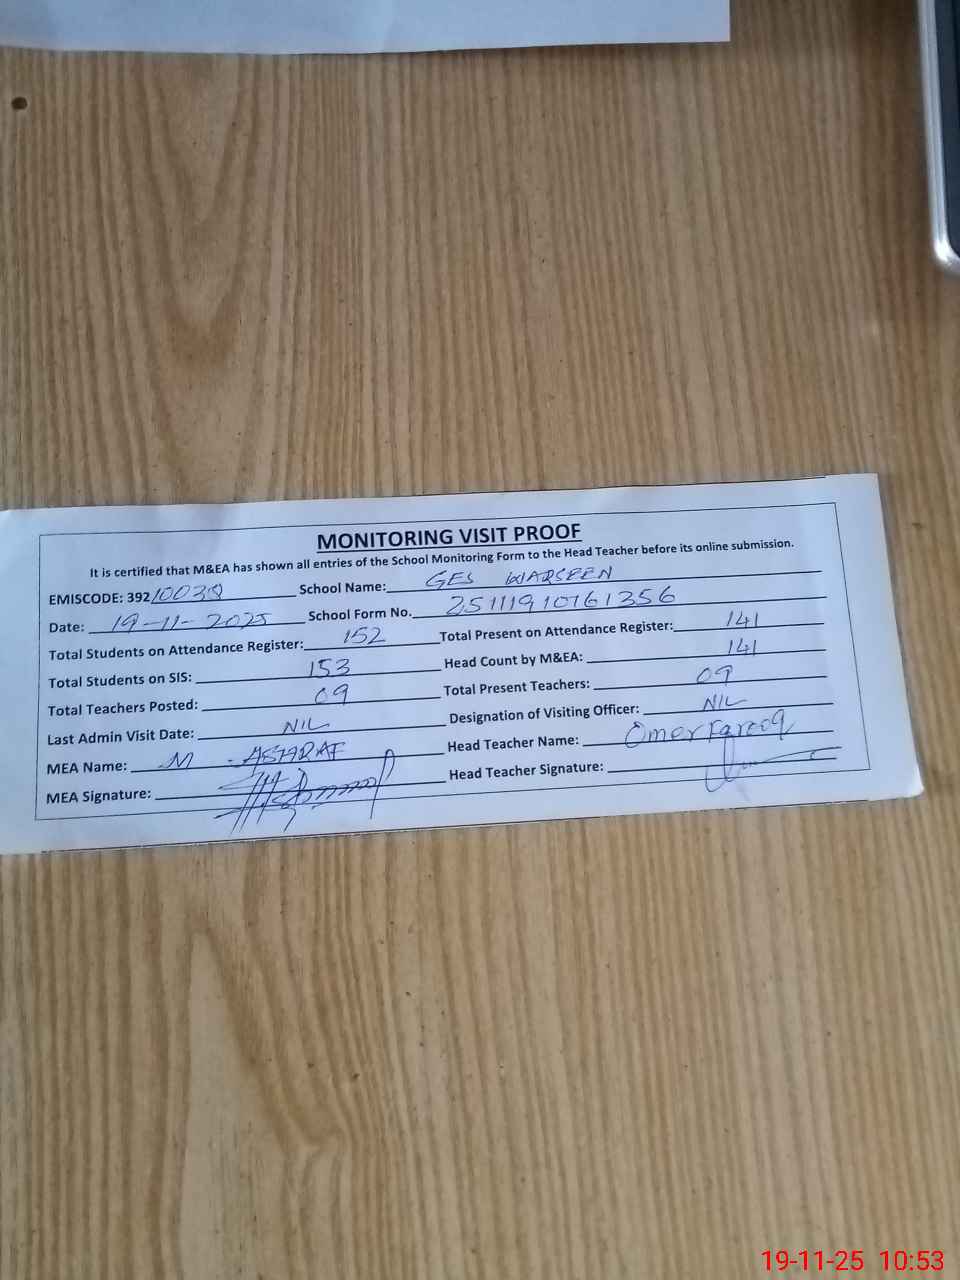 MONITORING VISIT PROOF
It is certified that M&EA has shown all entries of the School Monitoring Form to the Head Teacher before its online submission.
EMISCODE: 392 School Name: GES WARSEEN
Date: 19-11-2025 School Form No. 25111910761356
Total Students on Attendance Register: 152 Total Present on Attendance Register: 141
Total Students on SIS: 153 Head Count by M&EA: 141
Total Teachers Posted: 09 Total Present Teachers: 09
Last Admin Visit Date: NIL Designation of Visiting Officer: NIL
MEA Name: M. ASHRAF Head Teacher Name: Omer Farooq
MEA Signature: Head Teacher Signature:
19-11-25 10:53